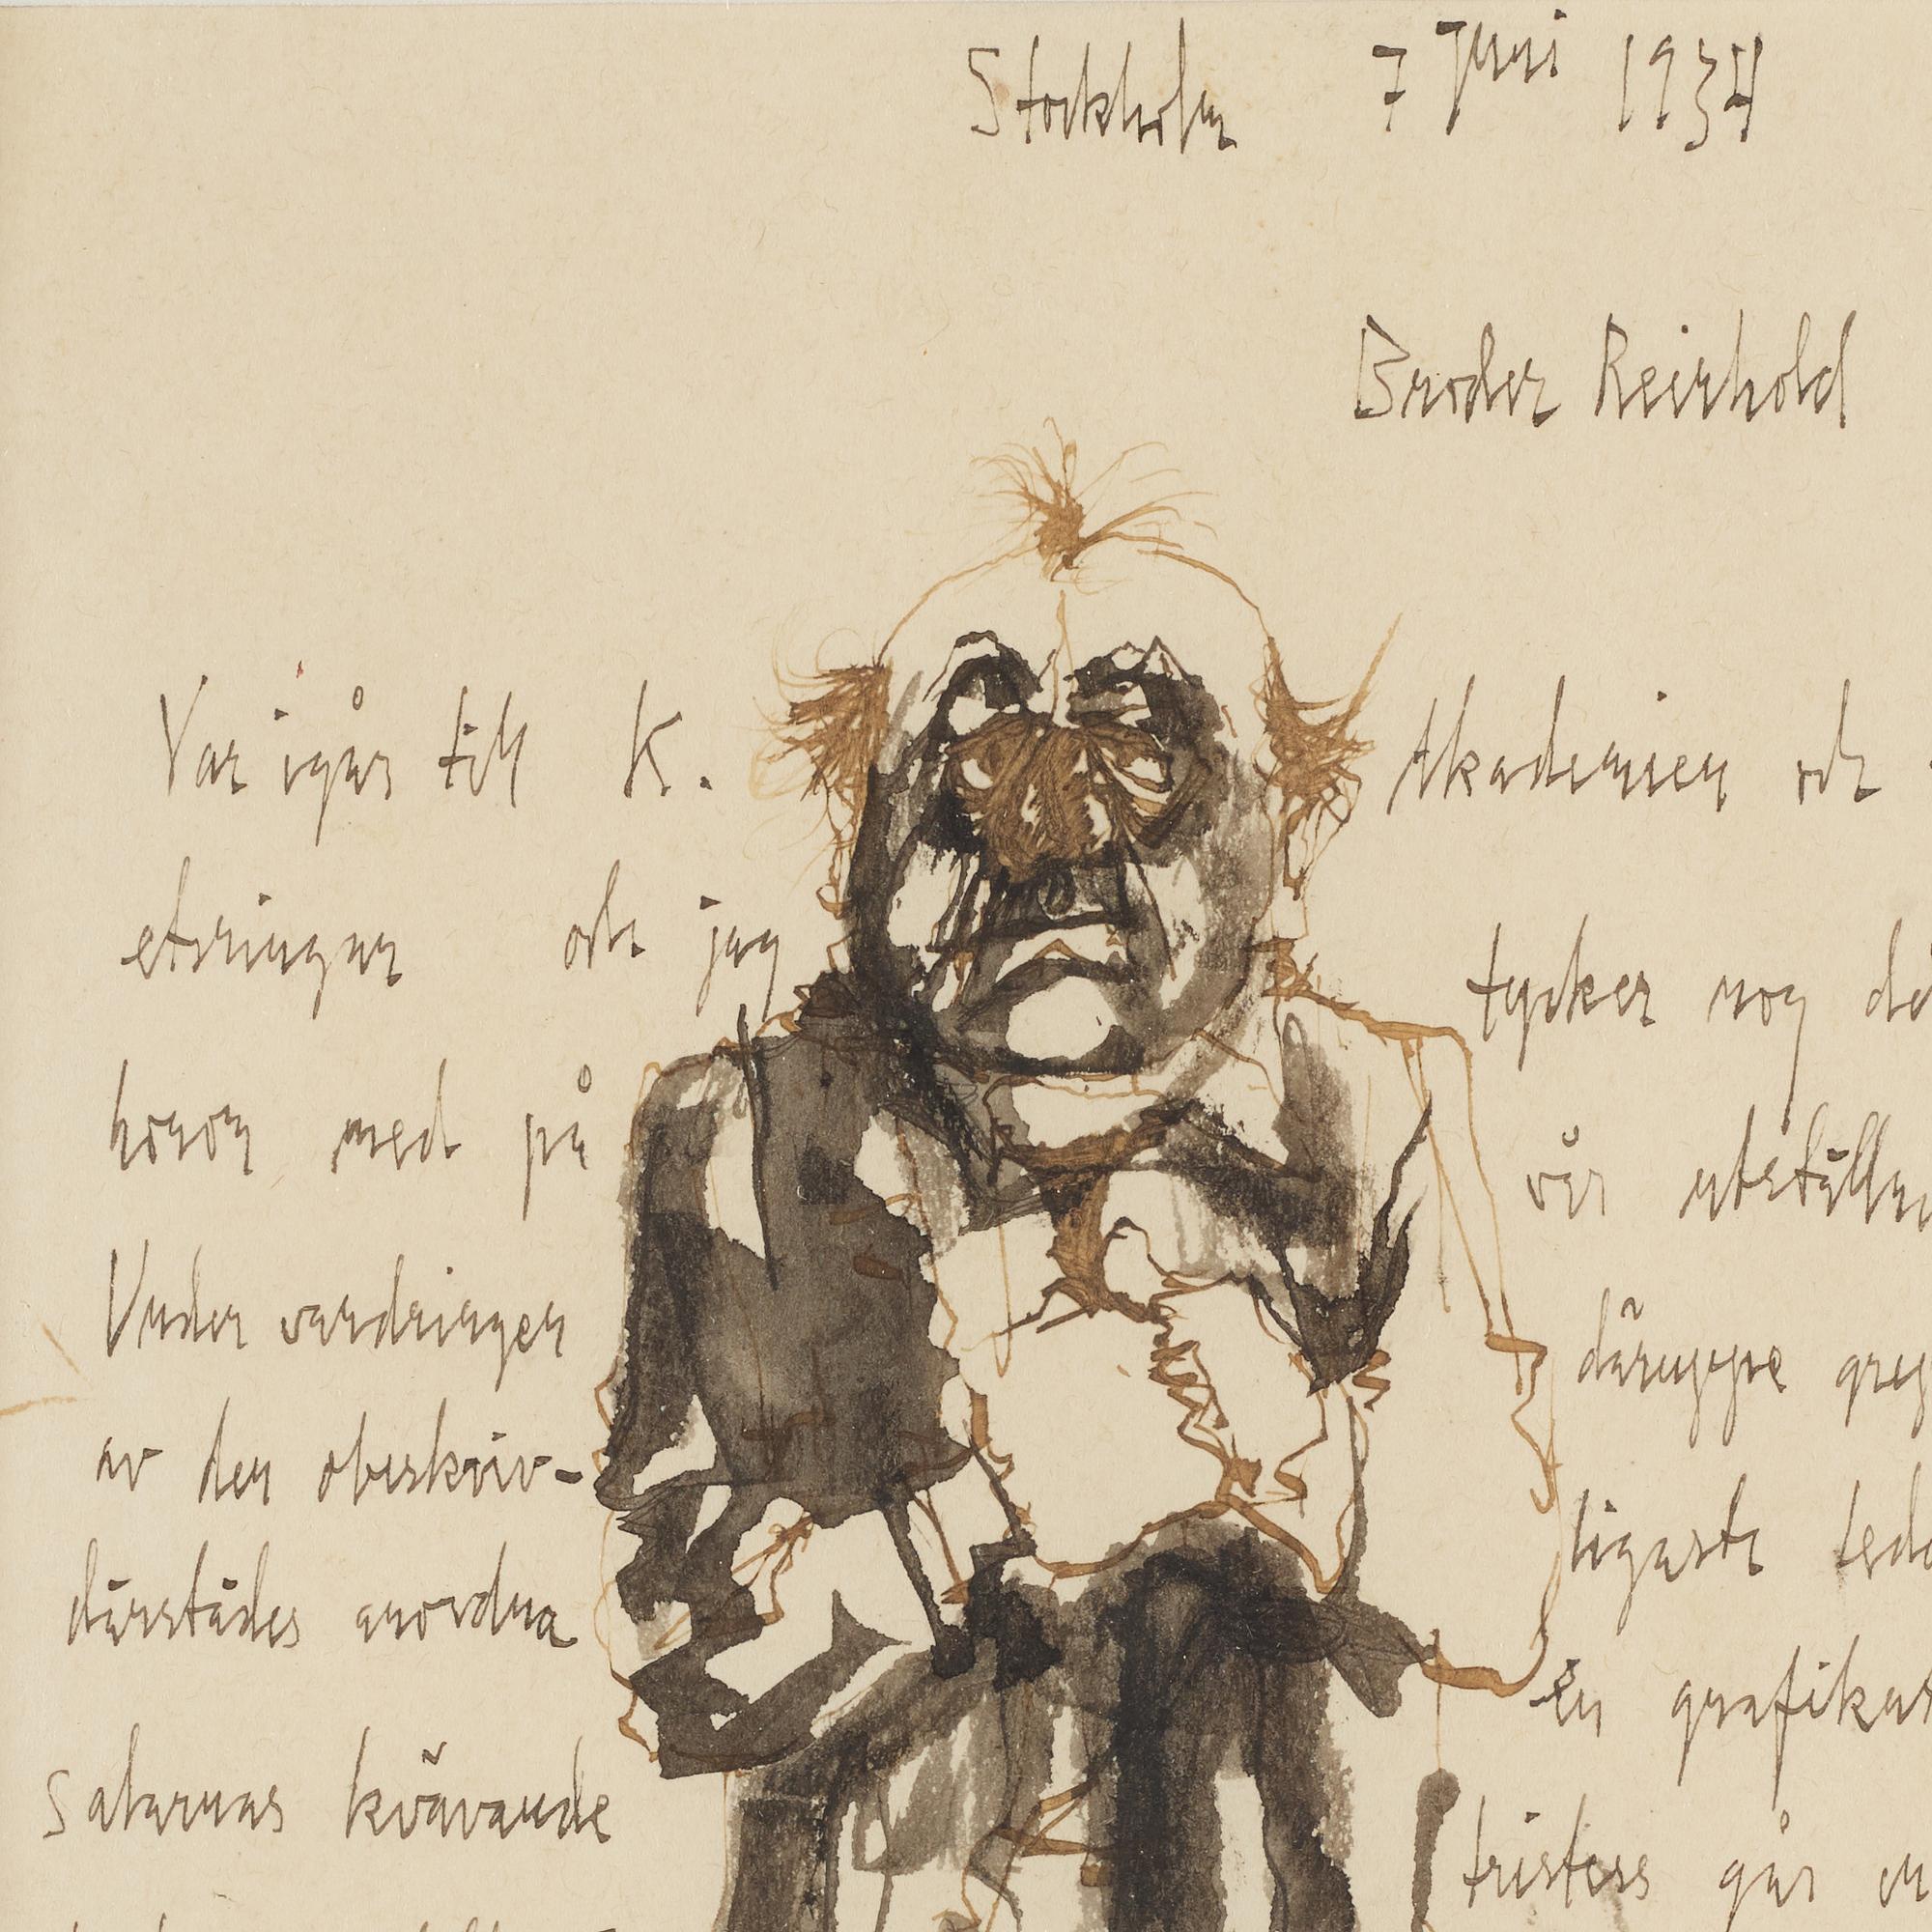 Stockholm 7 Juni 1934
Broder Reinhold
Var igår till K. Akademien och
etsningar och jag tycker nog
honom med på vår
Under vandringen däruppe
av den obeskriv- ligaste
därstädes anordna En
Salarnas kvävande tristess går